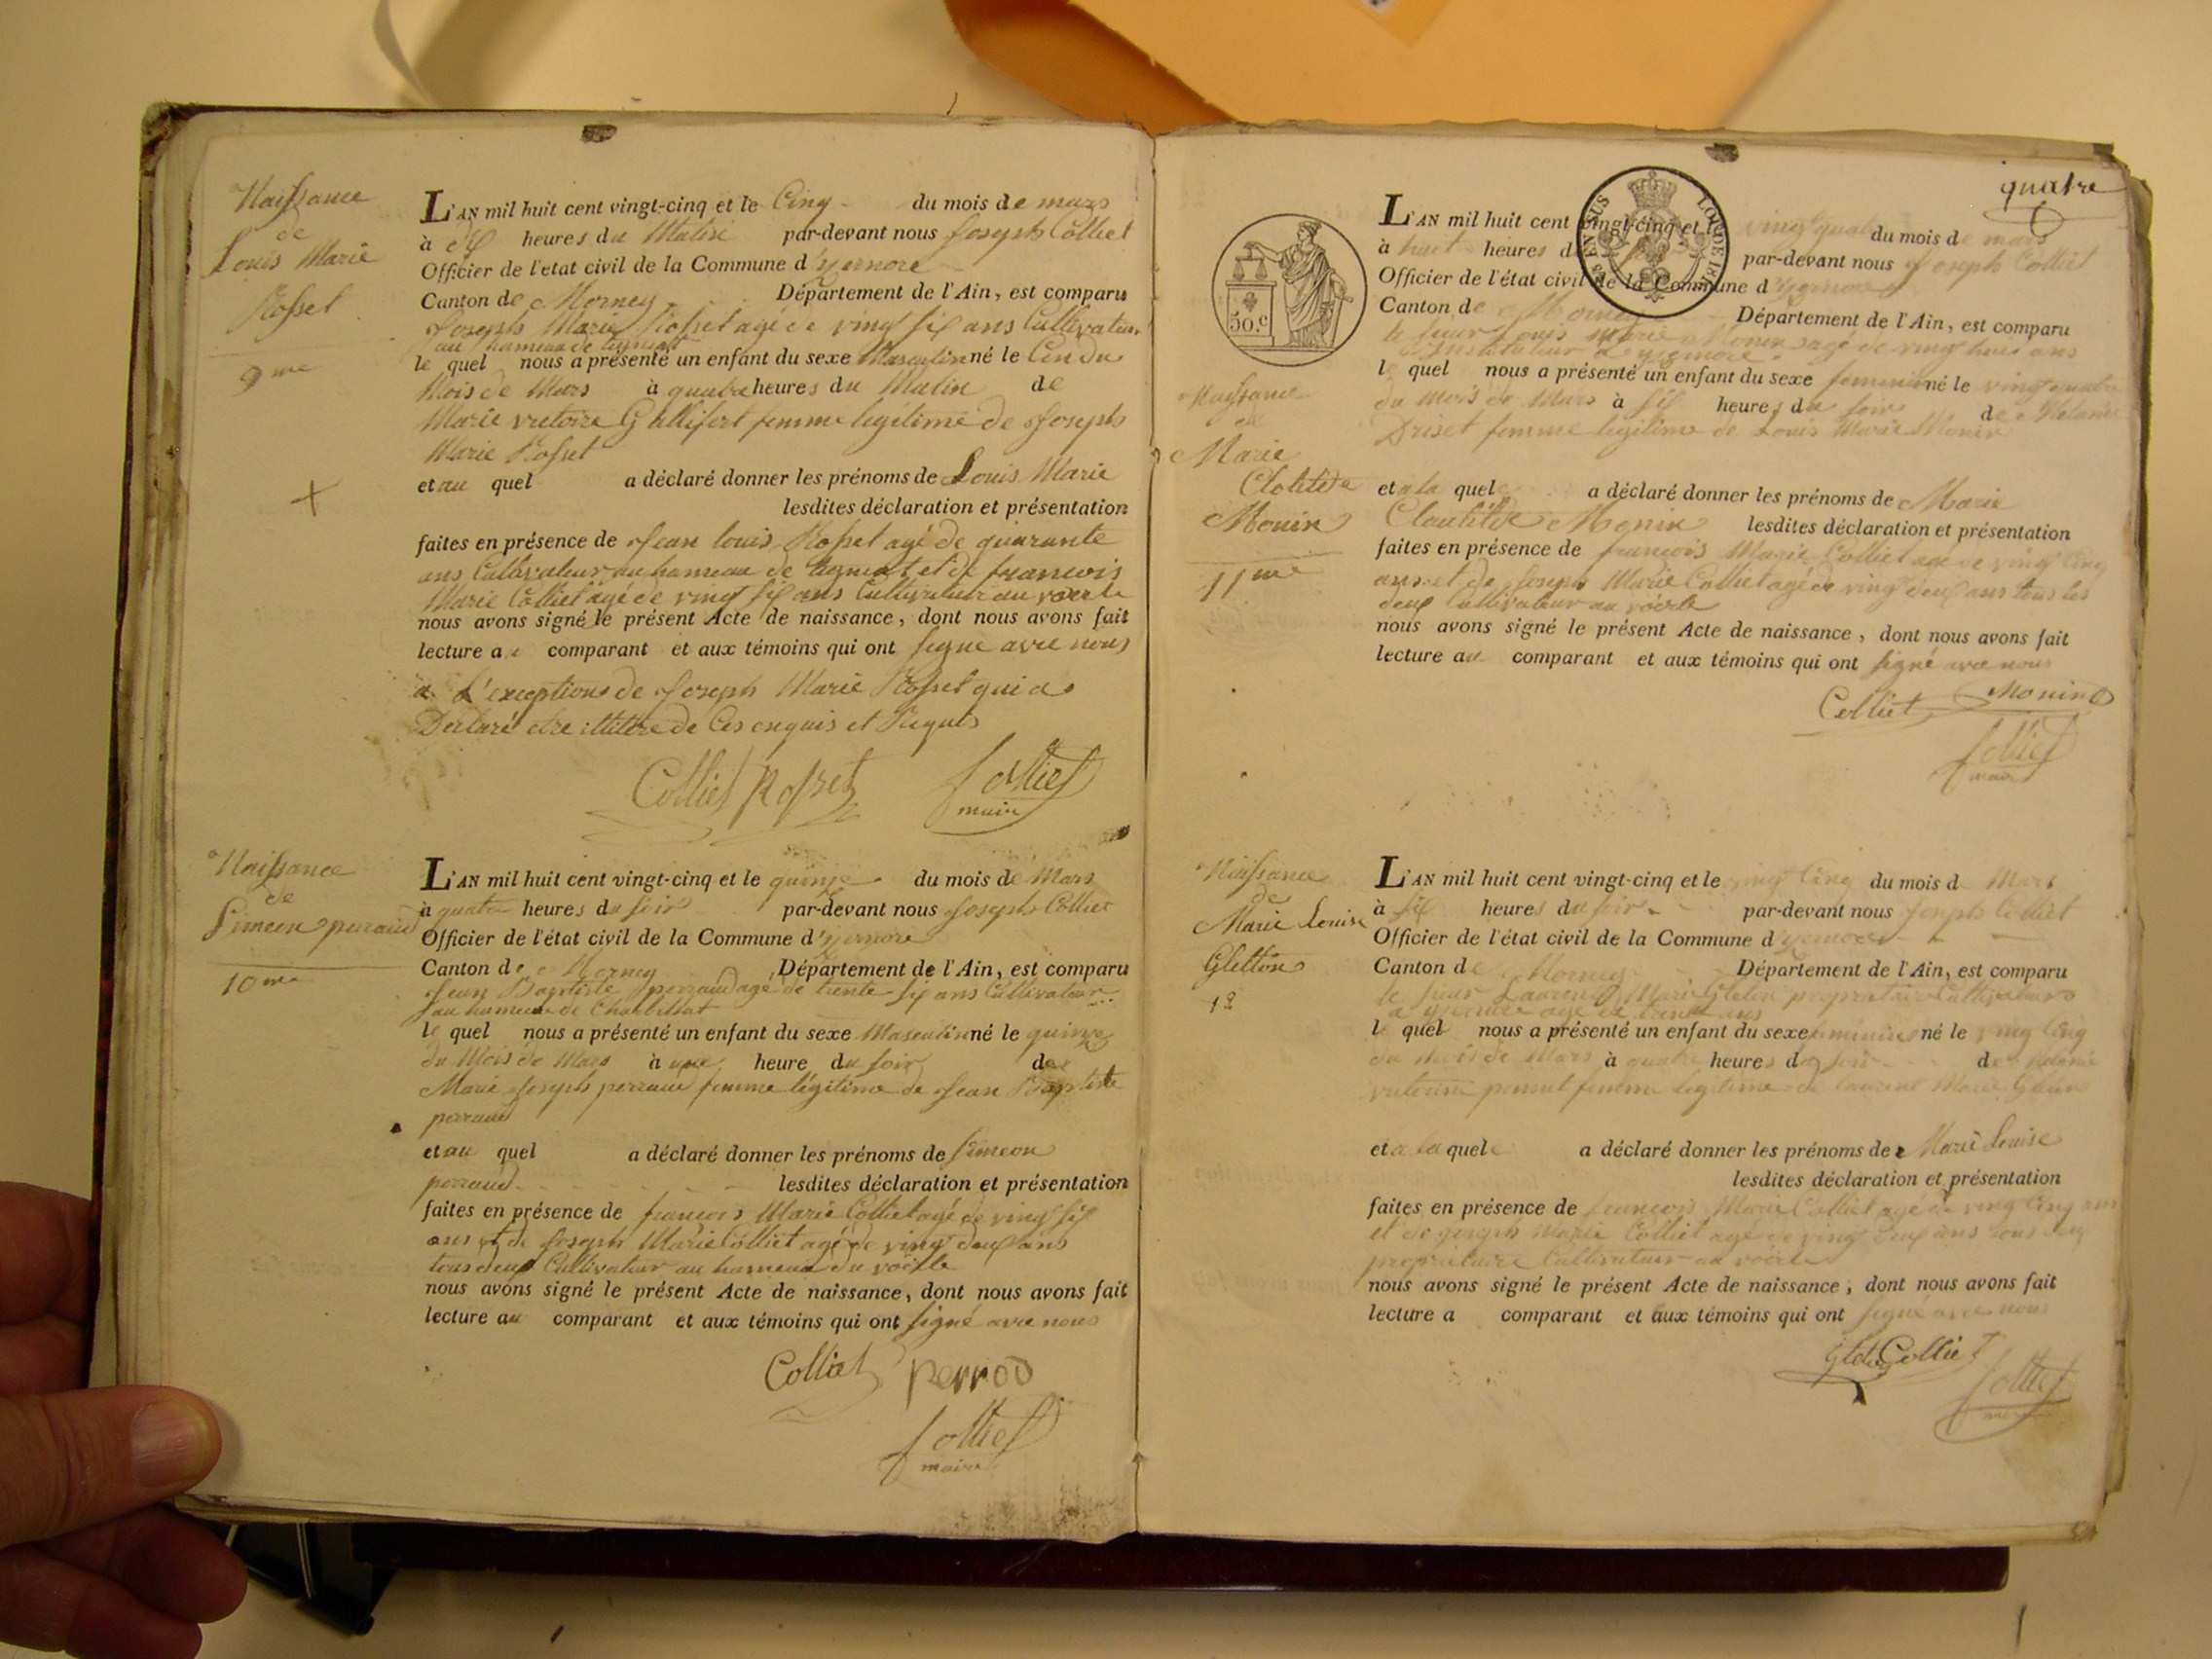 Naissance
de
Louis Marie
Rosset
9me
L'AN mil huit cent vingt-cinq et le Cinq du mois de mars
à dix heures du Matin par-devant nous Joseph Colliet
Officier de l'etat civil de la Commune d'yzernore
Canton de Morney Département de l'Ain, est comparu
Joseph Marie Rosset agé de ving six ans Cultivateur
au hameau de
le quel nous a présenté un enfant du sexe Masculin né le Cin du
Mois de Mars à quatre heures du Matin de
Marie victoire Gallifert femme legitime de Joseph
Marie Rosset
et au quel a déclaré donner les prénoms de Louis Marie
lesdites déclaration et présentation
faites en présence de Jean louis Rosset agé de quarante
ans Cultivateur au hameau de et de francois
Marie Colliet agé de ving six ans Cultivateur au voerle
nous avons signé le présent Acte de naissance, dont nous avons fait
lecture au comparant et aux témoins qui ont signé avec nous
a L'exception de Joseph Marie Rosset qui a
Declaré etre illitere de Ces enquis et Requis
Colliet Rosset Colliet
maire
Naissance
de
Simeon perraud
10me
L'AN mil huit cent vingt-cinq et le quinze du mois de Mars
à quatre heures du soir par-devant nous Joseph Colliet
Officier de l'état civil de la Commune d'yzernore
Canton de Morney Département de l'Ain, est comparu
Jean Baptiste perraud agé de trente six ans Cultivateur
au hameau de Charbillat
le quel nous a présenté un enfant du sexe Masculin né le quinze
du Mois de Mars à une heure du soir de
Marie Joseph perraud femme légitime de Jean Baptiste
perraud
et au quel a déclaré donner les prénoms de Simeon
perraud lesdites déclaration et présentation
faites en présence de francois Marie Colliet agé de ving six
ans et de Joseph Marie Colliet agé de ving deux ans
tous deux Cultivateur au hameau du voerle
nous avons signé le présent Acte de naissance, dont nous avons fait
lecture au comparant et aux témoins qui ont signé avec nous
Colliet perrod
Colliet
maire
quatre
50.c
Naissance
de
Marie
Clotilde
Monin
11me
L'AN mil huit cent vingt-cinq et le ving quatre du mois de mars
à huit heures d par-devant nous Joseph Colliet
Officier de l'état civil de la Commune d'yzernore
Canton de Morney Département de l'Ain, est comparu
le sieur Louis Marie Monin agé de ving huit ans
Instituteur a yzernore
le quel nous a présenté un enfant du sexe feminin né le ving quatre
du Mois de Mars à six heures du soir de Melanie
Driset femme legitime de Louis Marie Monin
et a la quele a déclaré donner les prénoms de Marie
Clautilde Monin lesdites déclaration et présentation
faites en présence de francois Marie Colliet agé de ving Cinq
ans et de Joseph Marie Colliet agé de ving deux ans tous les
deux Cultivateur au voerle
nous avons signé le présent Acte de naissance, dont nous avons fait
lecture au comparant et aux témoins qui ont signé avec nous
Colliet Monin
Colliet
maire
Naissance
de
Marie Louise
Gletton
12
L'AN mil huit cent vingt-cinq et le ving Cinq du mois d Mars
à six heures du soir par-devant nous Joseph Colliet
Officier de l'état civil de la Commune d'yzernore
Canton de Morney Département de l'Ain, est comparu
le sieur Laurent Marie Gleton proprietaire Cultivateur
a yzernore agé de ans
le quel nous a présenté un enfant du sexe feminin né le ving Cinq
du Mois de Mars à quatre heures du soir de
femme legitime de laurent Marie Gleton
et a la quele a déclaré donner les prénoms de Marie Louise
lesdites déclaration et présentation
faites en présence de francois Marie Colliet agé de ving Cinq ans
et de Joseph Marie Colliet agé de ving deux ans tous deux
proprietaire Cultivateur au voerle
nous avons signé le présent Acte de naissance, dont nous avons fait
lecture a comparant et aux témoins qui ont signé avec nous
Colliet
Colliet
maire